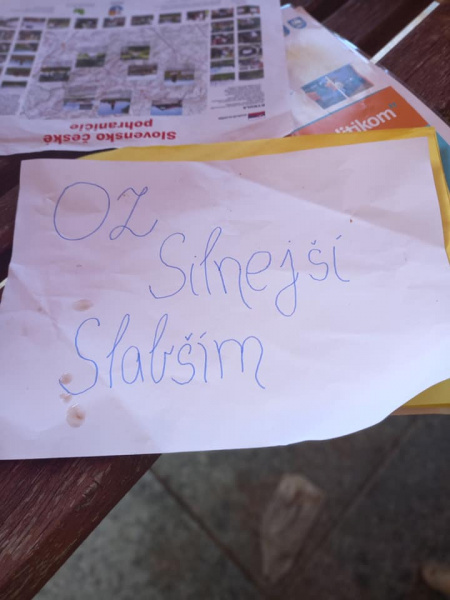 Slovensko české
pohraničie
litikom
OZ
Silnejší
Slabším